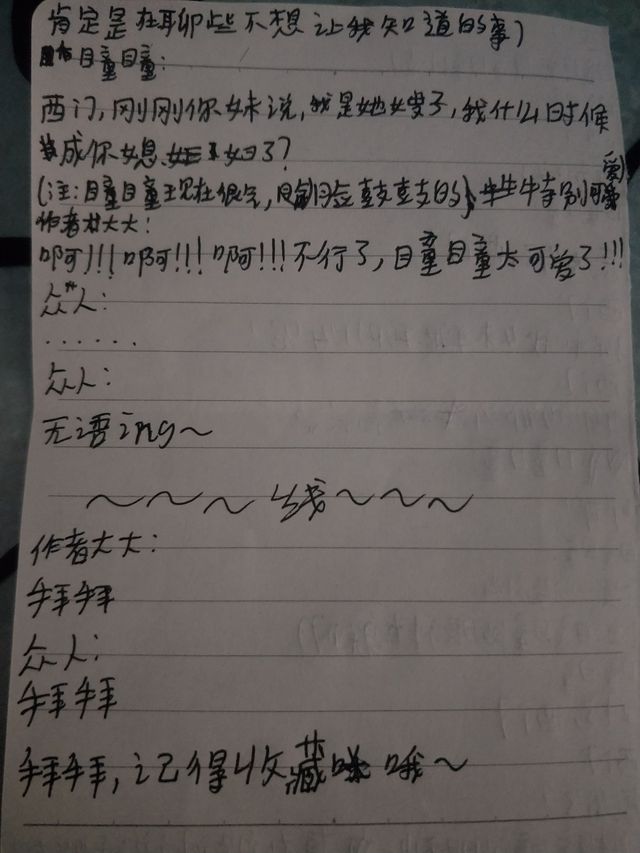 肯定是在聊些不想让我知道的事)
瞳瞳:
西门,刚刚你妹说,我是她嫂子,我什么时候
成你媳妇了?
(注:瞳瞳现在很气,脸鼓鼓的),特别可爱)
作者大大:
啊!!!啊!!!啊!!!不行了,瞳瞳太可爱了!!!
众人:
......
众人:
无语ing~
~~~线~~~
作者大大:
拜拜
众人:
拜拜
拜拜,记得收藏哦~